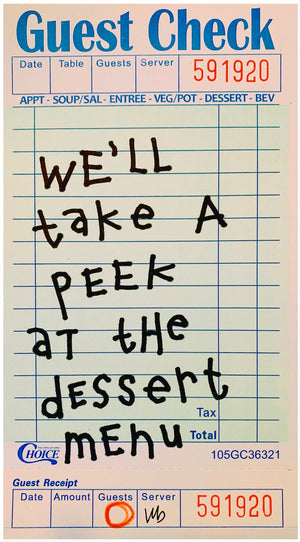 Guest Check
Date Table Guests Server 591920
APPT - SOUP/SAL - ENTREE - VEG/POT - DESSERT - BEV
WE'LL
take A
PEEK
aT tHe
dessert
Tax
mENU Total
CHOICE 105GC36321
Guest Receipt
Date Amount Guests Server 591920
O